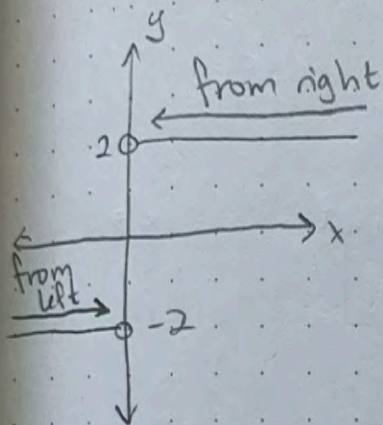 y
from right
2
x
from
left
-2